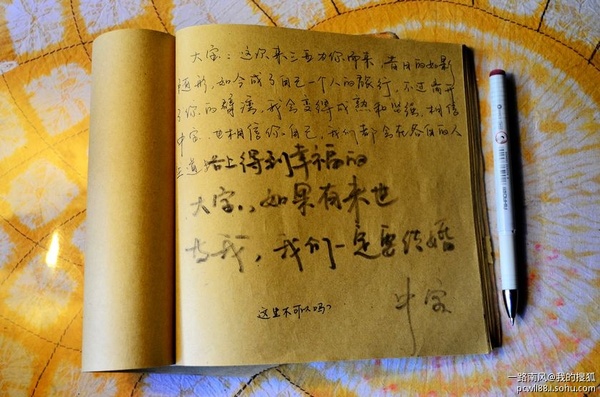 大宝：这次来三亚为你而来，昔日的如影
随形，如今成了自己一个人的旅行，不过离开
了你的臂弯，我会变得成熟和坚强，相信
中宝，也相信你自己，我们都会在各自的人
生道路上得到幸福的
大宝，如果有来世
我，我们一定要结婚
中宝
这里不可以吗？
一路南风@我的搜狐
pcwl188.i.sohu.com